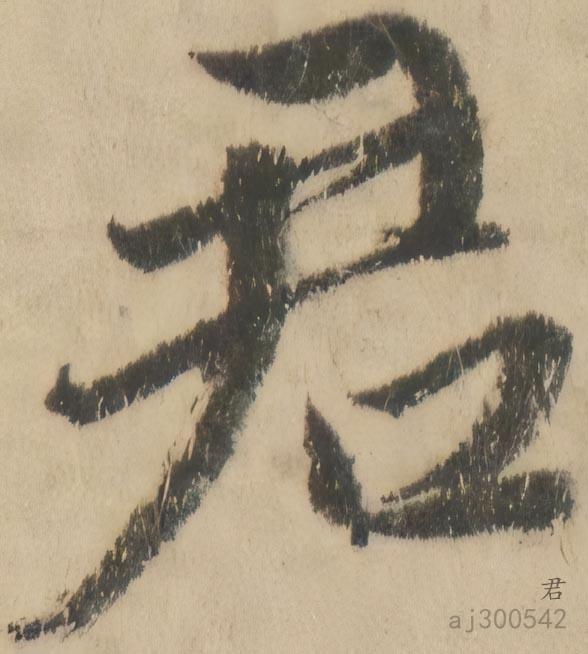 君
君
aj300542